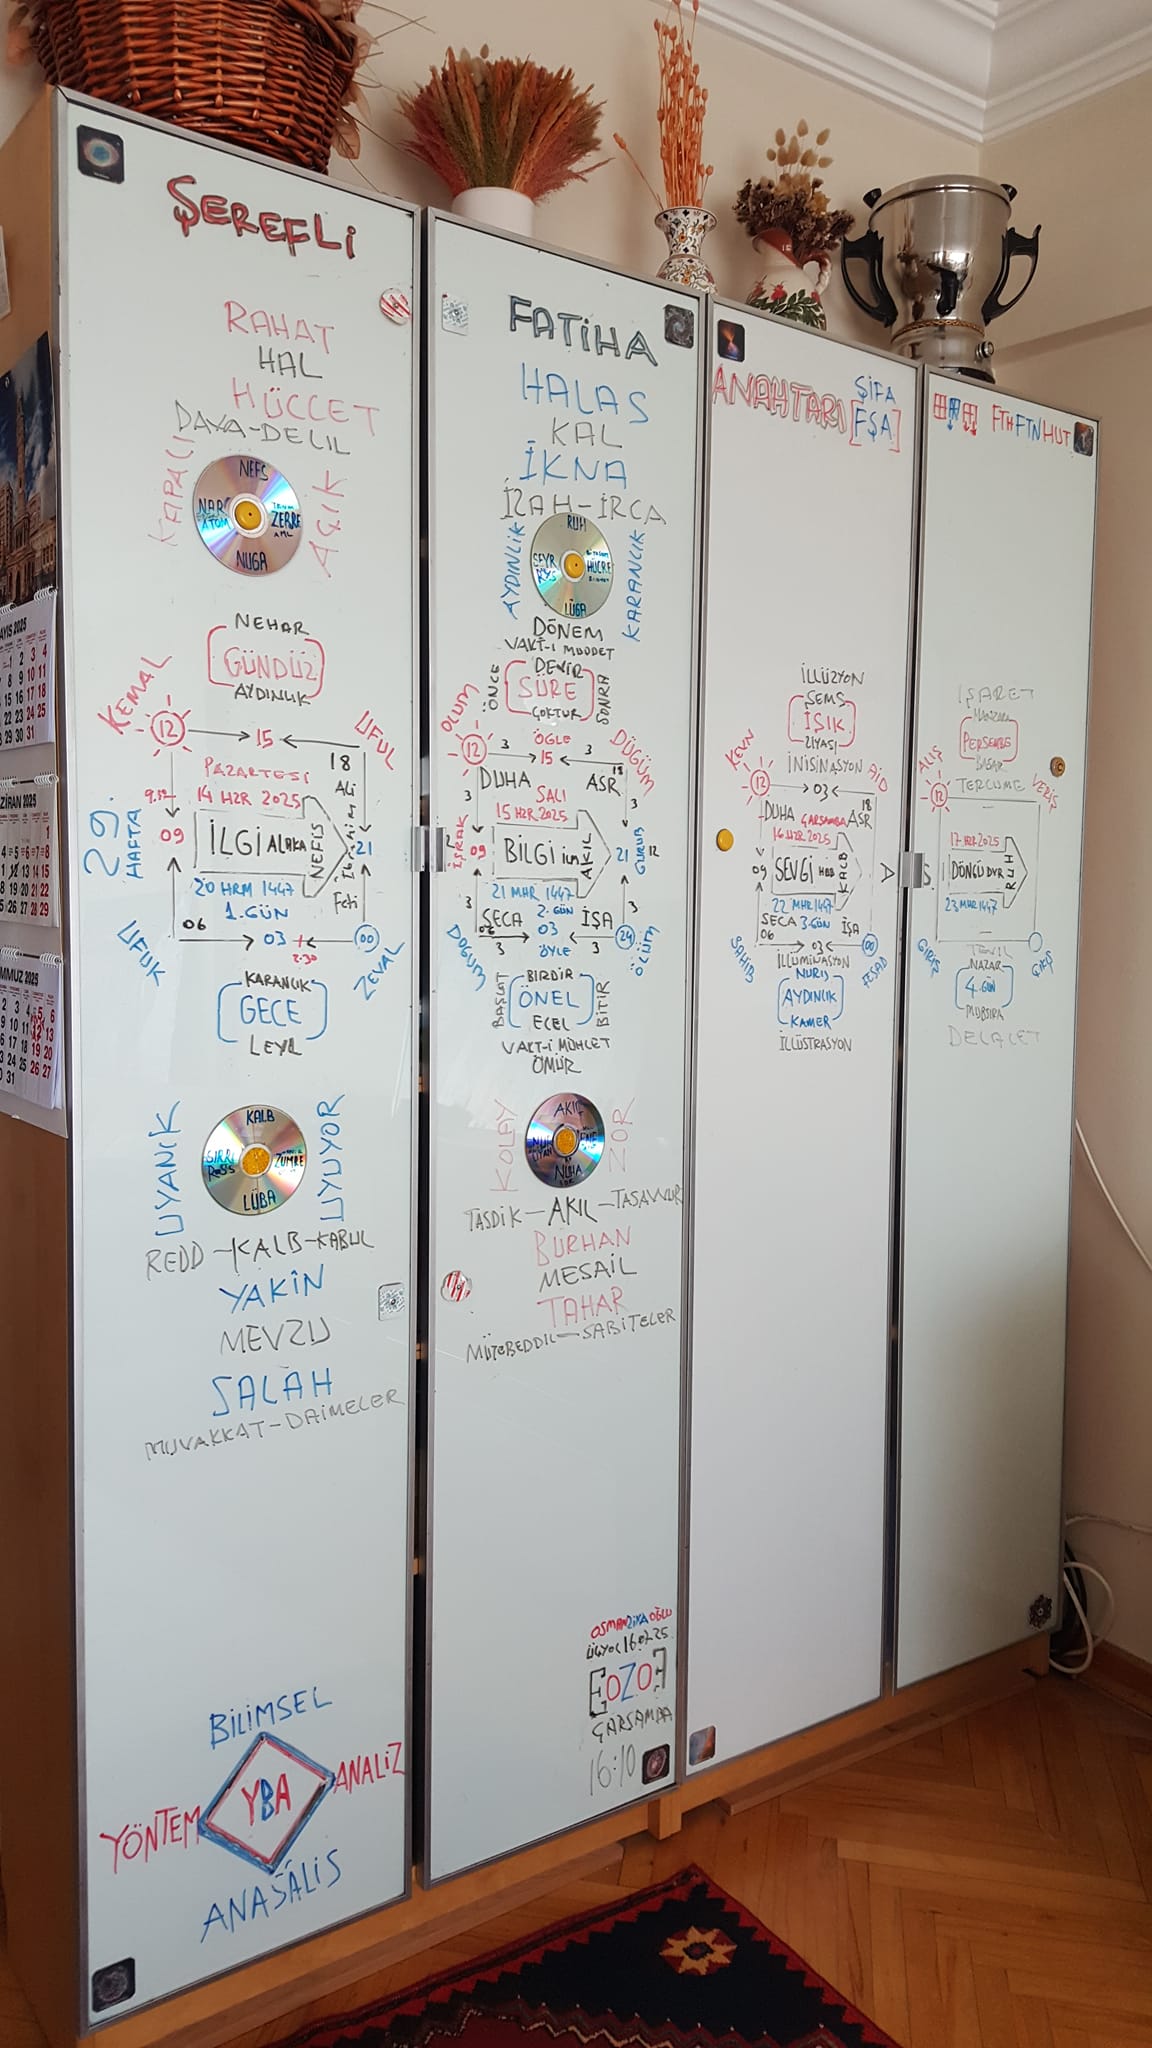 ŞEREFLİ
RAHAT
HAL
HÜCCET
DAVA-DELİL
KAPALI
AÇIK
NEFS
NAR
ATOM
ZERRE
NUGA
NEHAR
GÜNDÜZ
AYDINLIK
KEMAL
UFUL
12
15
18
PAZARTESİ
14 HZR 2025
9.32
Ali
29.
HAFTA
09
İLGİ ALAKA
NEFİS
21
20 HRM 1447
1.GÜN
Feti
06
03
2:30
00
UFUK
ZEVAL
KARANLIK
GECE
LEYL
UYANIK
UYUYOR
KALB
SIRR
ZÜMRE
LÜBA
REDD-KALB-KABUL
YAKİN
MEVZU
SALAH
MUVAKKAT-DAİMELER
BİLİMSEL
YÖNTEM
YBA
ANALİZ
ANASÂLİS
FATİHA
HALAS
KAL
İKNA
İZAH-İRCA
AYDINLIK
KARANLIK
RUH
SEYR
HÜCRE
LÜGA
DÖNEM
VAKT-İ MÜDDET
DEVİR
ÖNCE
SÜRE
SONRA
ÇOKTUR
OLUM
DÜĞÜM
12
3
ÖĞLE
15
3
18
DUHA
ASR
3
SALI
3
15 HZR 2025
İŞRAK
09
BİLGİ
AKIL
21
GURUB
12
21 MHR 1447
3
SECA
2. GÜN
İŞA
3
06
03
24
3
ÖYLE
3
DOĞUM
ÖLÜM
BİRDİR
BAŞLAT
ÖNEL
BİTİR
ECEL
VAKT-İ MÜHLET
ÖMÜR
KOLAY
ZOR
AKIL
NUR
NUHA
TASDİK-AKIL-TASAVVUR
BURHAN
MESAİL
TAHAR
MÜTEBEDDİL-SABİTELER
OSMANZİYAOĞLU
16.07.25
EOZOF
ÇARŞAMBA
16:10
ANAHTARI
ŞİFA
[FŞA]
İLLÜZYON
ŞEMS
IŞIK
ZİYASI
İNİSİNASYON
KEVN
AİD
12
03
18
DUHA
ÇARŞAMBA
ASR
16 HZR 2025
09
SEVGİ
KALB
A
22 MHR 1447
SECA
3.GÜN
İŞA
06
03
00
SAHİB
FESAD
İLLÜMİNASYON
NURU
AYDINLIK
KAMER
İLLÜSTRASYON
FTH FTN HUT
İŞARET
MANZARA
PERŞEMBE
BASAR
TERCÜME
ALIŞ
VERİŞ
12
17 HZR 2025
DÖNGÜ DVR
RUH
23 MHR 1447
GİRİŞ
ÇIKIŞ
NAZAR
4.GÜN
MUBSIRA
DELALET
MAYIS 2025
HAZİRAN 2025
TEMMUZ 2025